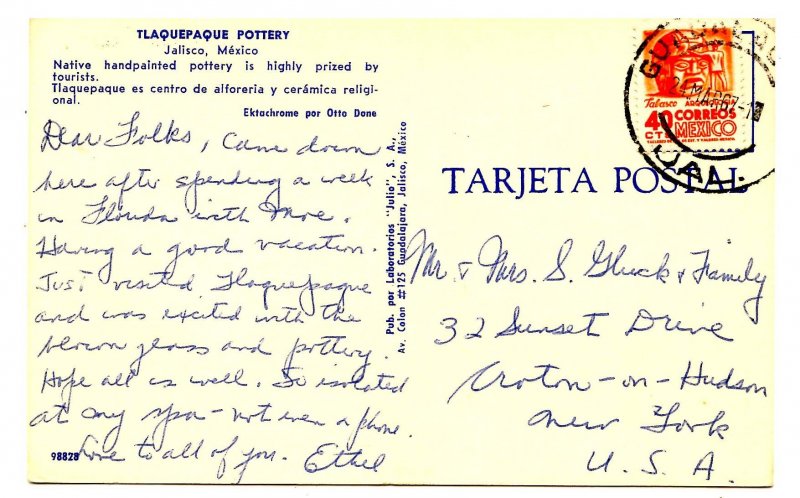 TLAQUEPAQUE POTTERY
Jalisco, México
Native handpainted pottery is highly prized by
tourists.
Tlaquepaque es centro de alforeria y cerámica religi-
onal.
Ektachrome por Otto Done
Dear Folks, Came down
here after spending a week
in Florida with Moe.
Having a good vacation.
Just visited Tlaquepaque
and was excited with the
blown glass and pottery.
Hope all is well. So isolated
at my spa - not even a phone.
Love to all of you. Ethel
98828
Pub. por Laboratorios "Julio", S. A.,
Av. Colon #125 Guadalajara, Jalisco, México
TARJETA POSTAL
Tabasco
40 CORREOS
CTS MEXICO
24.MAR.67
JAL.
Mr. & Mrs. S. Gluck & Family
32 Sunset Drive
Croton-on-Hudson
New York
U. S. A.